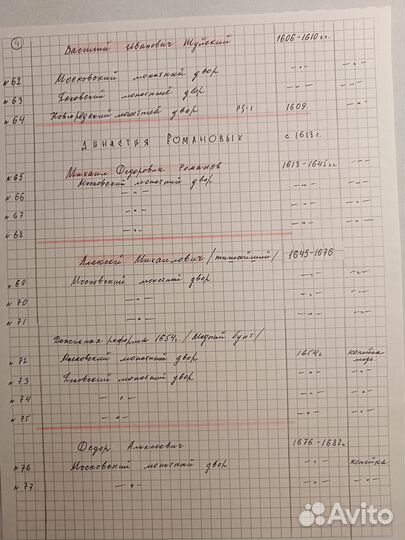 4
Василий Иванович Шуйский 1606-1610гг.
№62 Московский монетный двор -"- -"-
№63 Псковский монетный двор -"- -"-
№64 Новгородский монетный двор PS-1 1609 -"-
ДИНАСТИЯ РОМАНОВЫХ с 1613г.
№65 Михаил Федорович Романов 1613-1645гг. -"-
Московский монетный двор -"- -"-
№66 -"- -"- -"-
№67 -"- -"- -"-
№68 -"- -"- -"-
Алексей Михайлович /тишайший/ 1645-1676
№69 Московский монетный двор -"- -"-
№70 -"- -"- -"-
№71 -"- -"- -"-
Денежная реформа 1654г. /Медный бунт/
№72 Московский монетный двор 1654г. копейка медь.
№73 Псковский монетный двор -"- -"-
№74 -"- -"- -"-
№75 -"- -"- -"-
Федор Алексеевич 1676-1682г.
№76 Московский монетный двор -"- копейка
№77 -"- -"- -"-
Avito